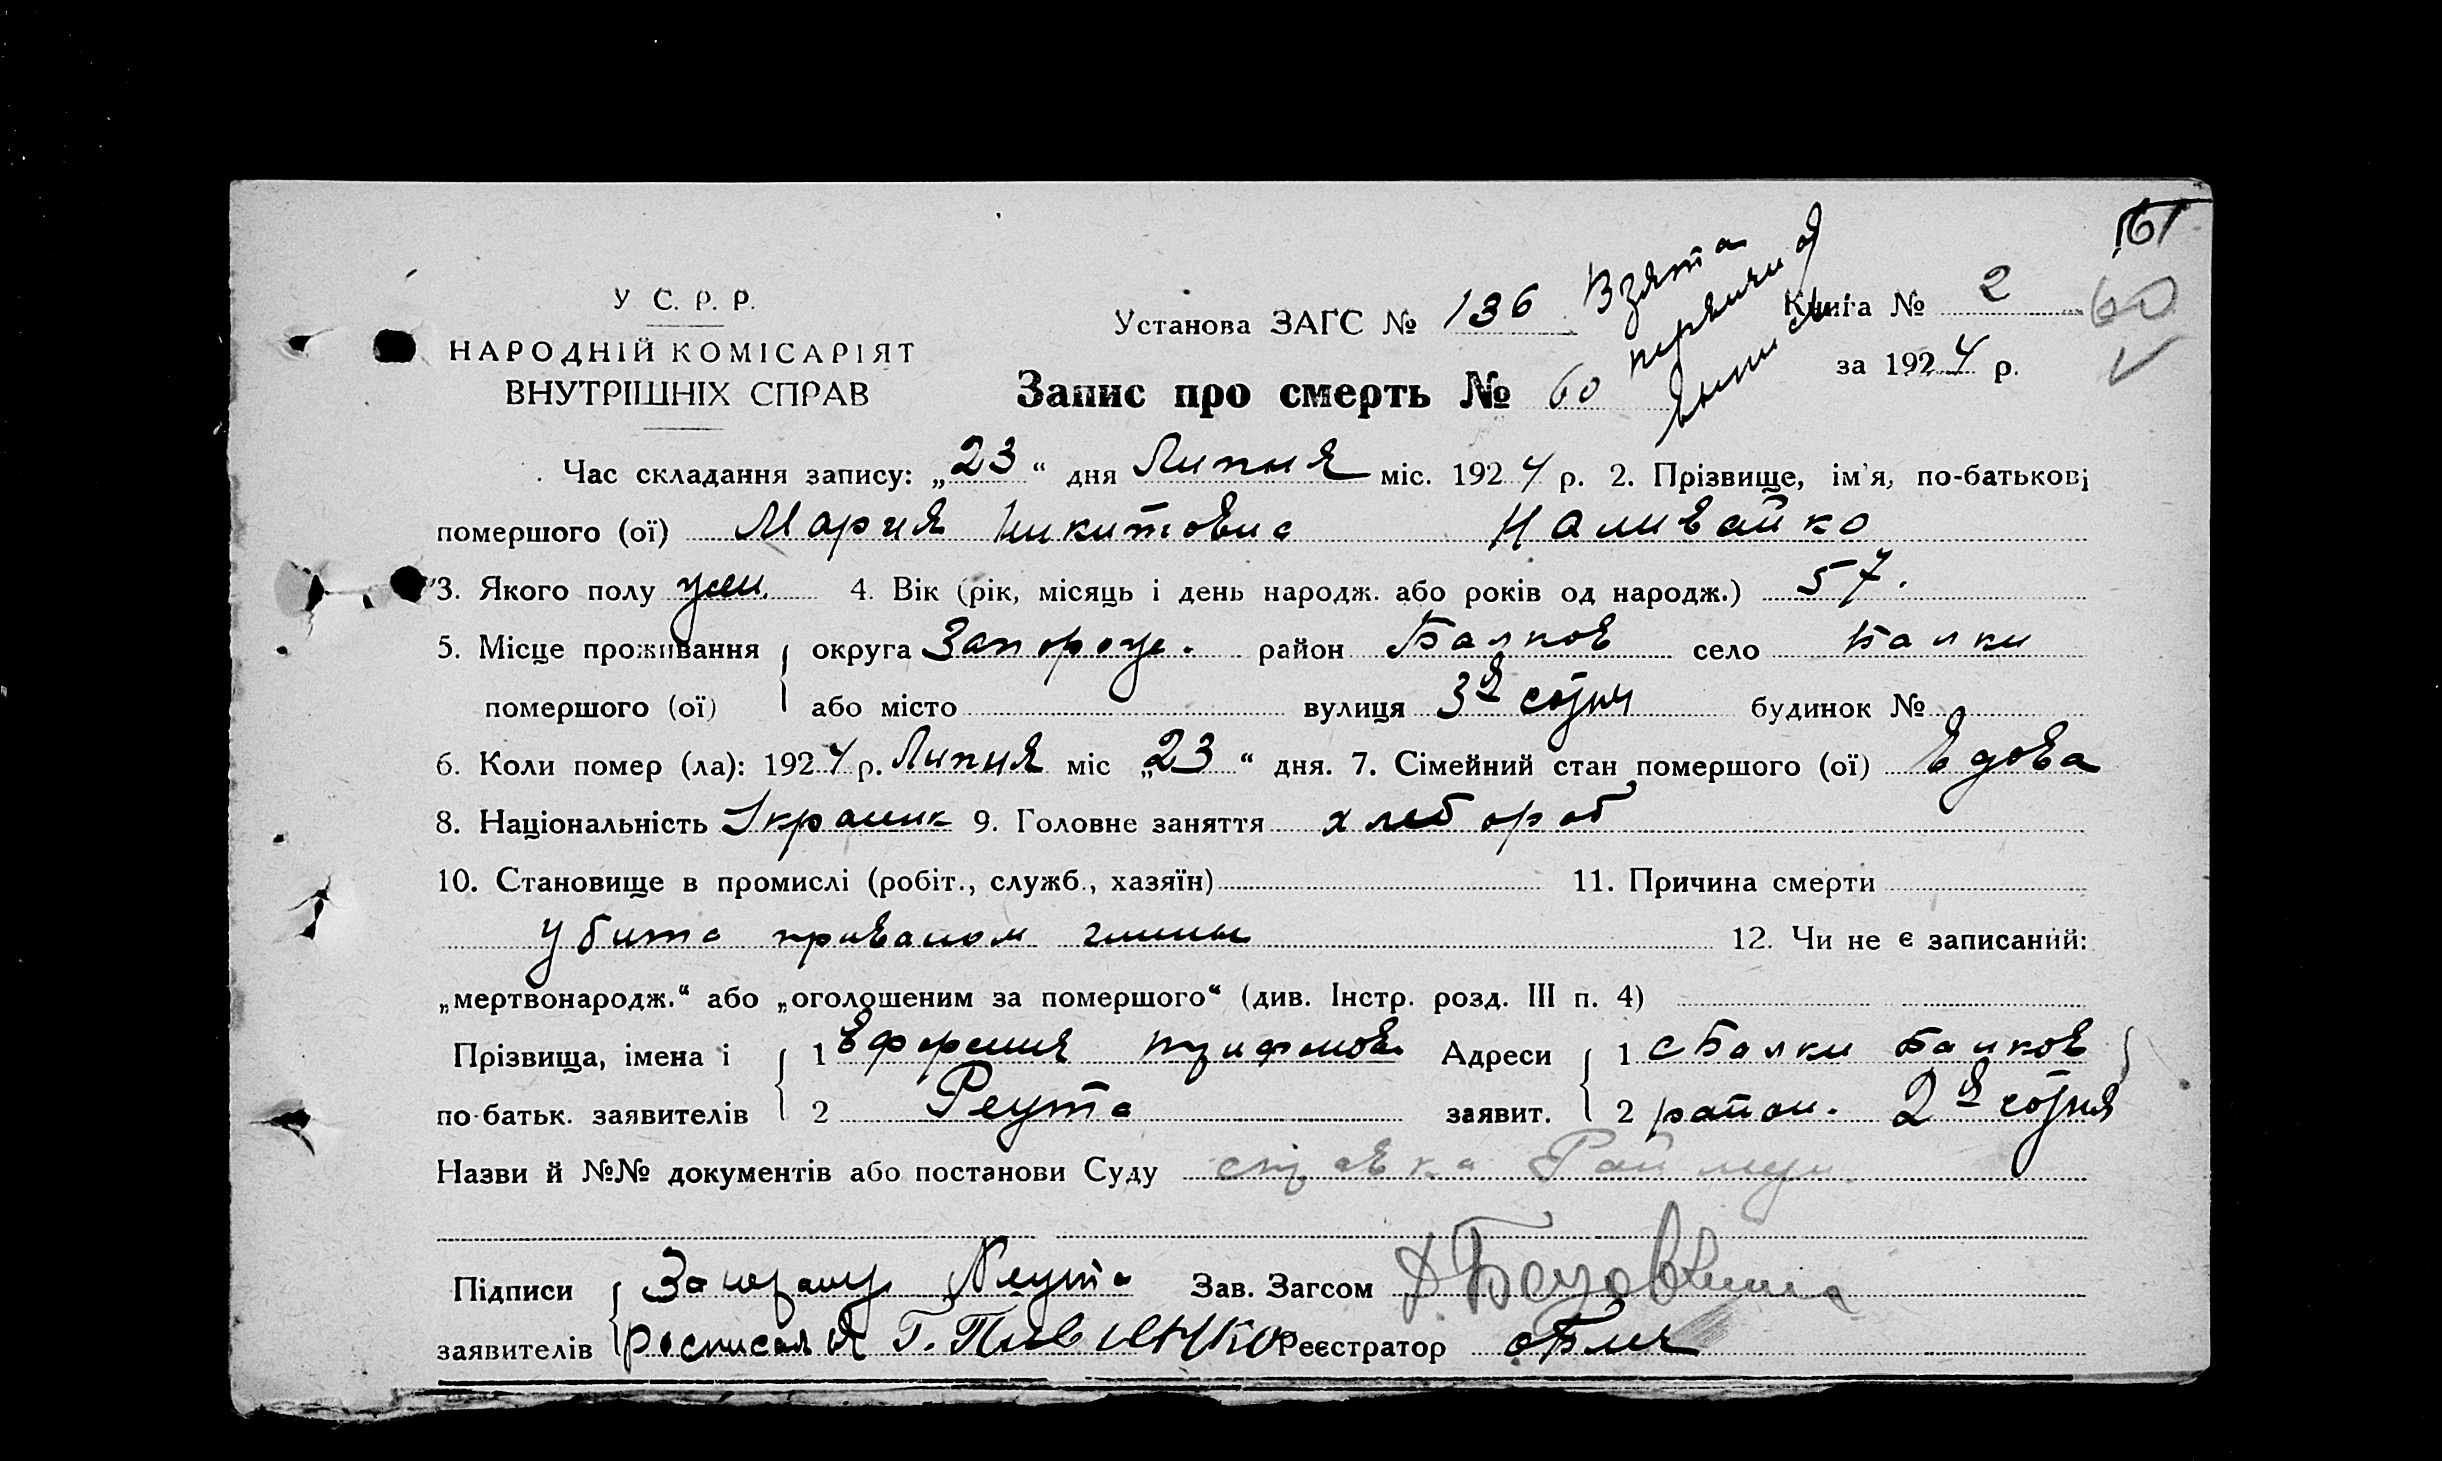 161
60
У С. Р. Р.
НАРОДНІЙ КОМІСАРІЯТ
ВНУТРІШНІХ СПРАВ
Установа ЗАГС № 136
Взята
выпись
Книга № 2
за 1924 р.
Запис про смерть № 60
Час складання запису: „23“ дня Липня міс. 1924 р. 2. Прізвище, ім'я, по-батькові
помершого (ої) Мария Никитовна Наливайко
3. Якого полу жен. 4. Вік (рік, місяць і день народж. або років од народж.) 57.
5. Місце проживання округа Запорож. район Балков село Балки
помершого (ої) або місто вулиця 3я сотня будинок №
6. Коли помер (ла): 1924 р. Липня міс „23“ дня. 7. Сімейний стан помершого (ої) вдова
8. Національність Украинк 9. Головне заняття хлебороб
10. Становище в промислі (робіт., служб., хазяїн) 11. Причина смерти
убита глины 12. Чи не є записаний:
„мертвонародж.“ або „оголошеним за помершого“ (див. Інстр. розд. III п. 4)
Прізвища, імена і 1 Адреси 1 с Балки Балков
по-батьк. заявителів 2 Реута заявит. 2 район. 2я сотня
Назви й №№ документів або постанови Суду справка
Підписи Реута Зав. Загсом
заявителів росписался Г. Реєстратор